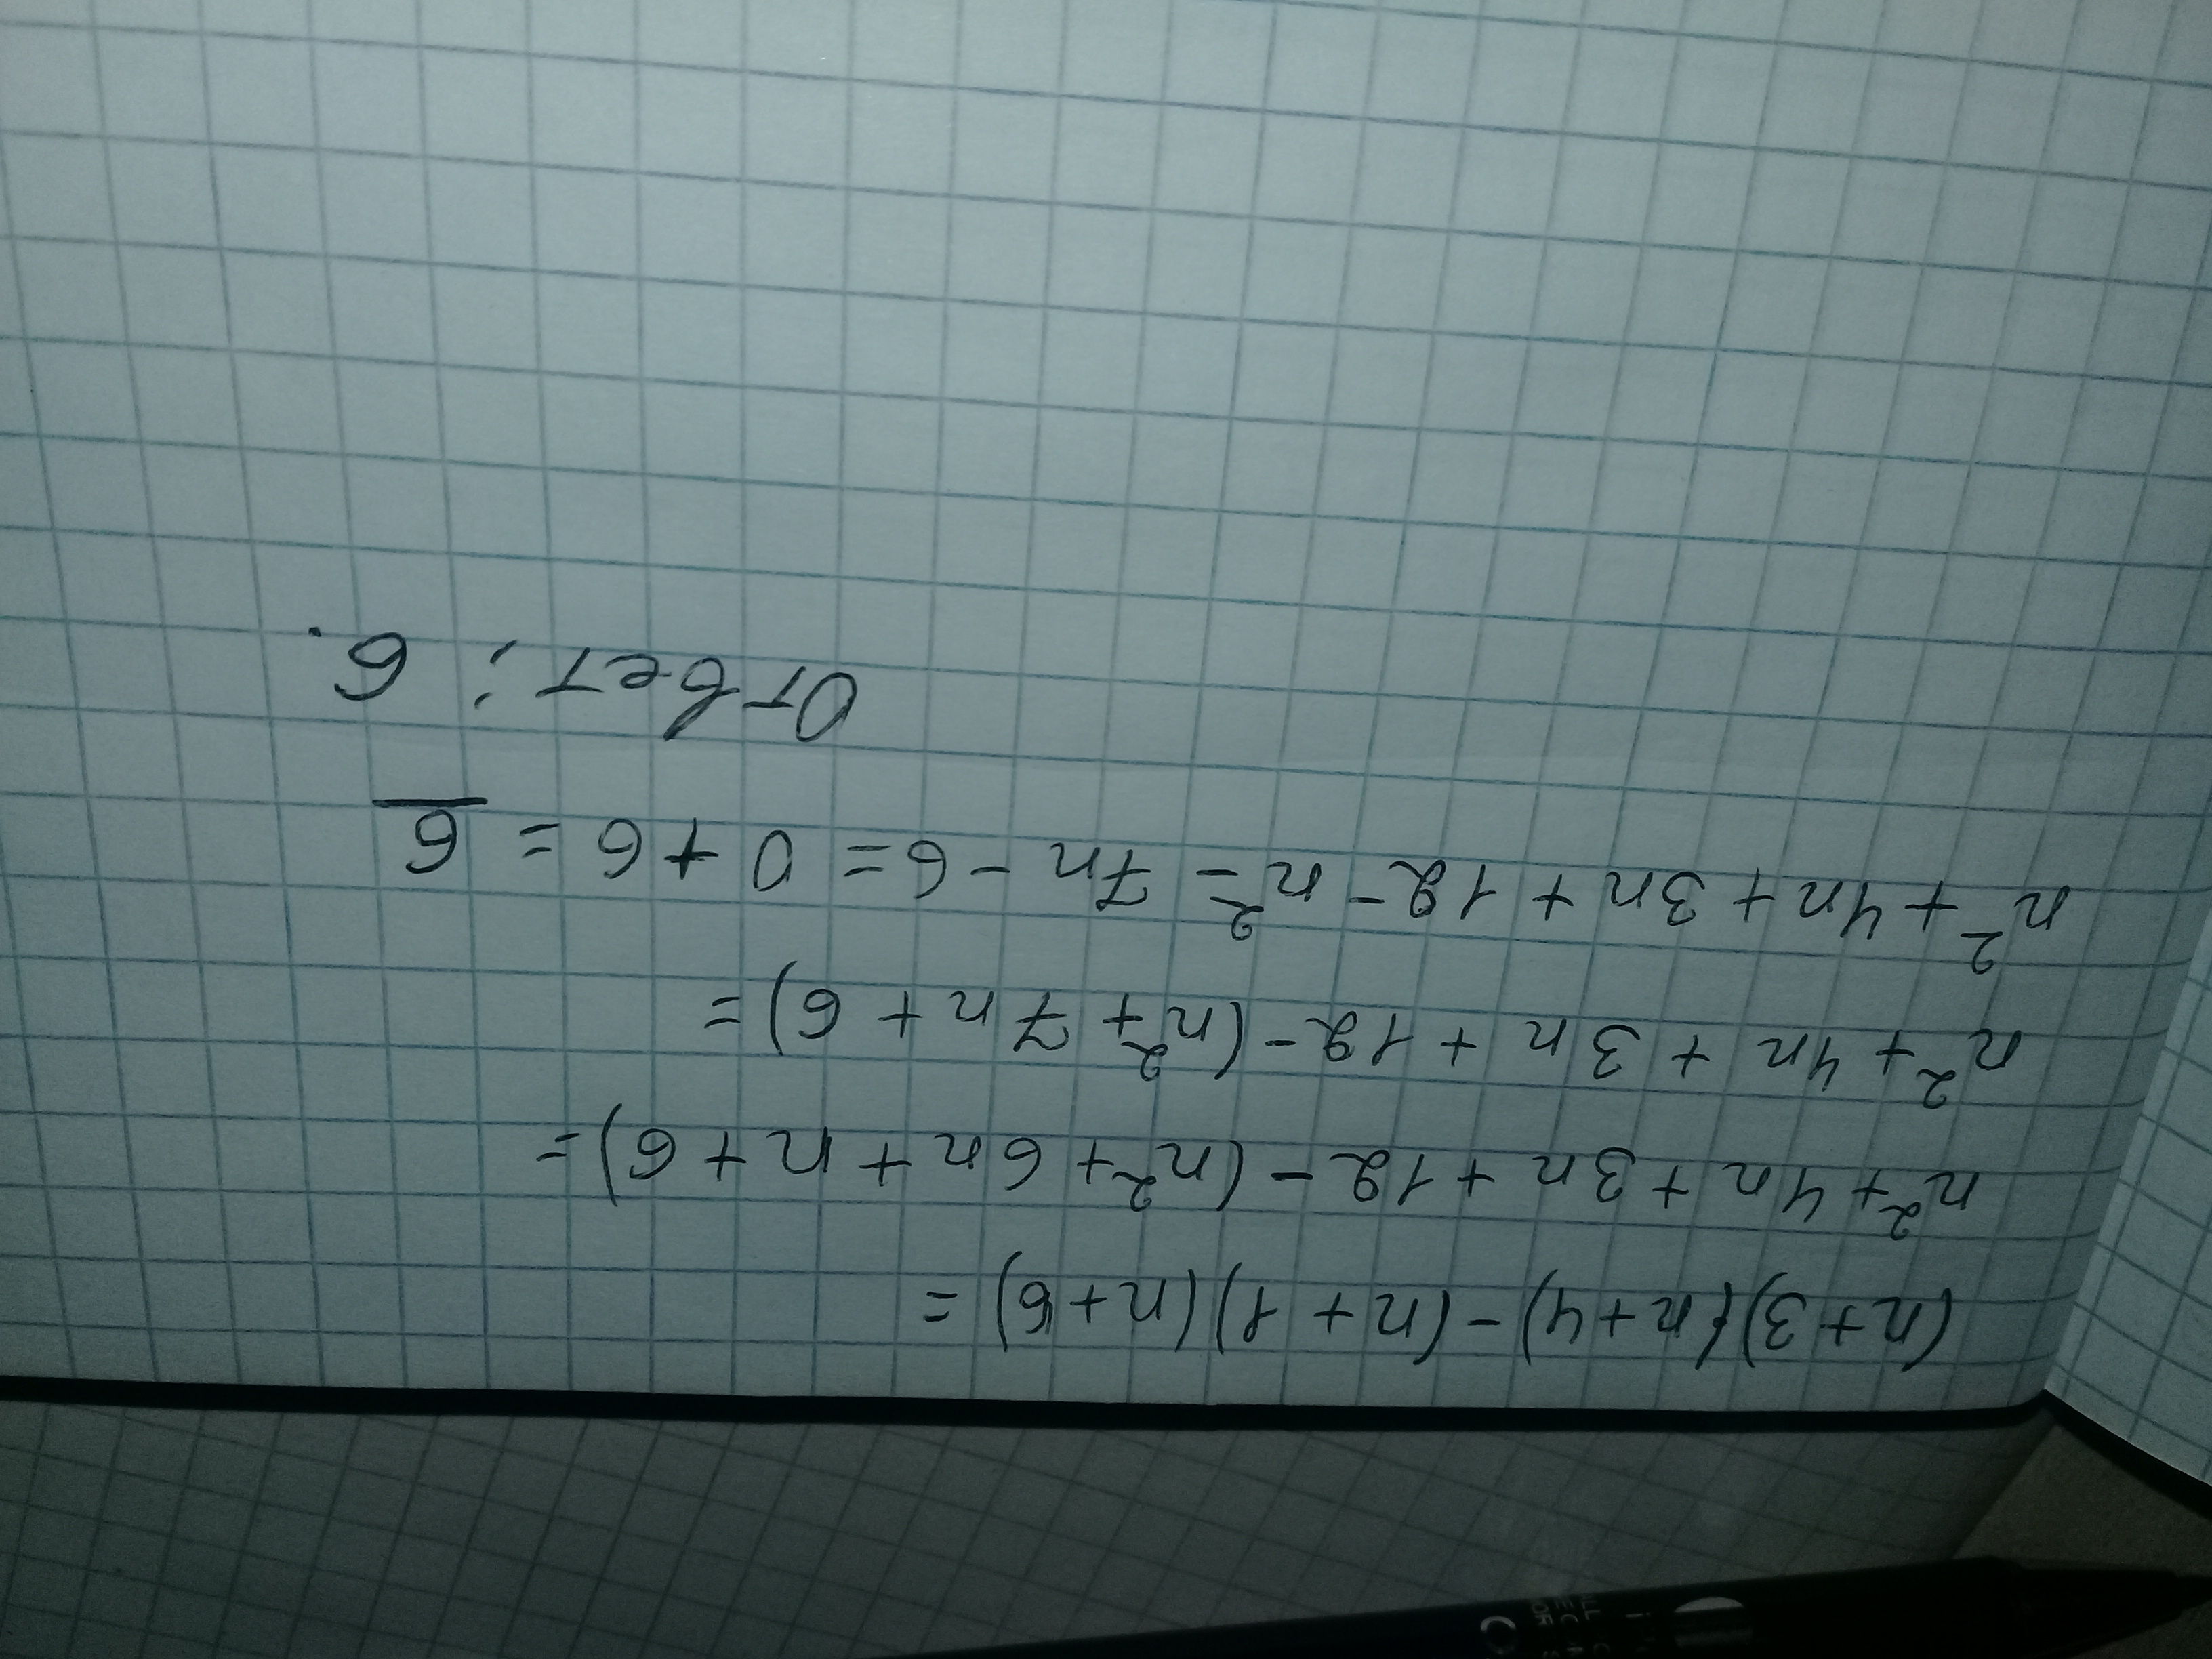 (n+3)(n+4)-(n+1)(n+6)=
n²+4n+3n+12-(n²+6n+n+6)=
n²+4n+3n+12-(n²+7n+6)=
n²+4n+3n+12-n²-7n-6=0+6=6
Ответ: 6.